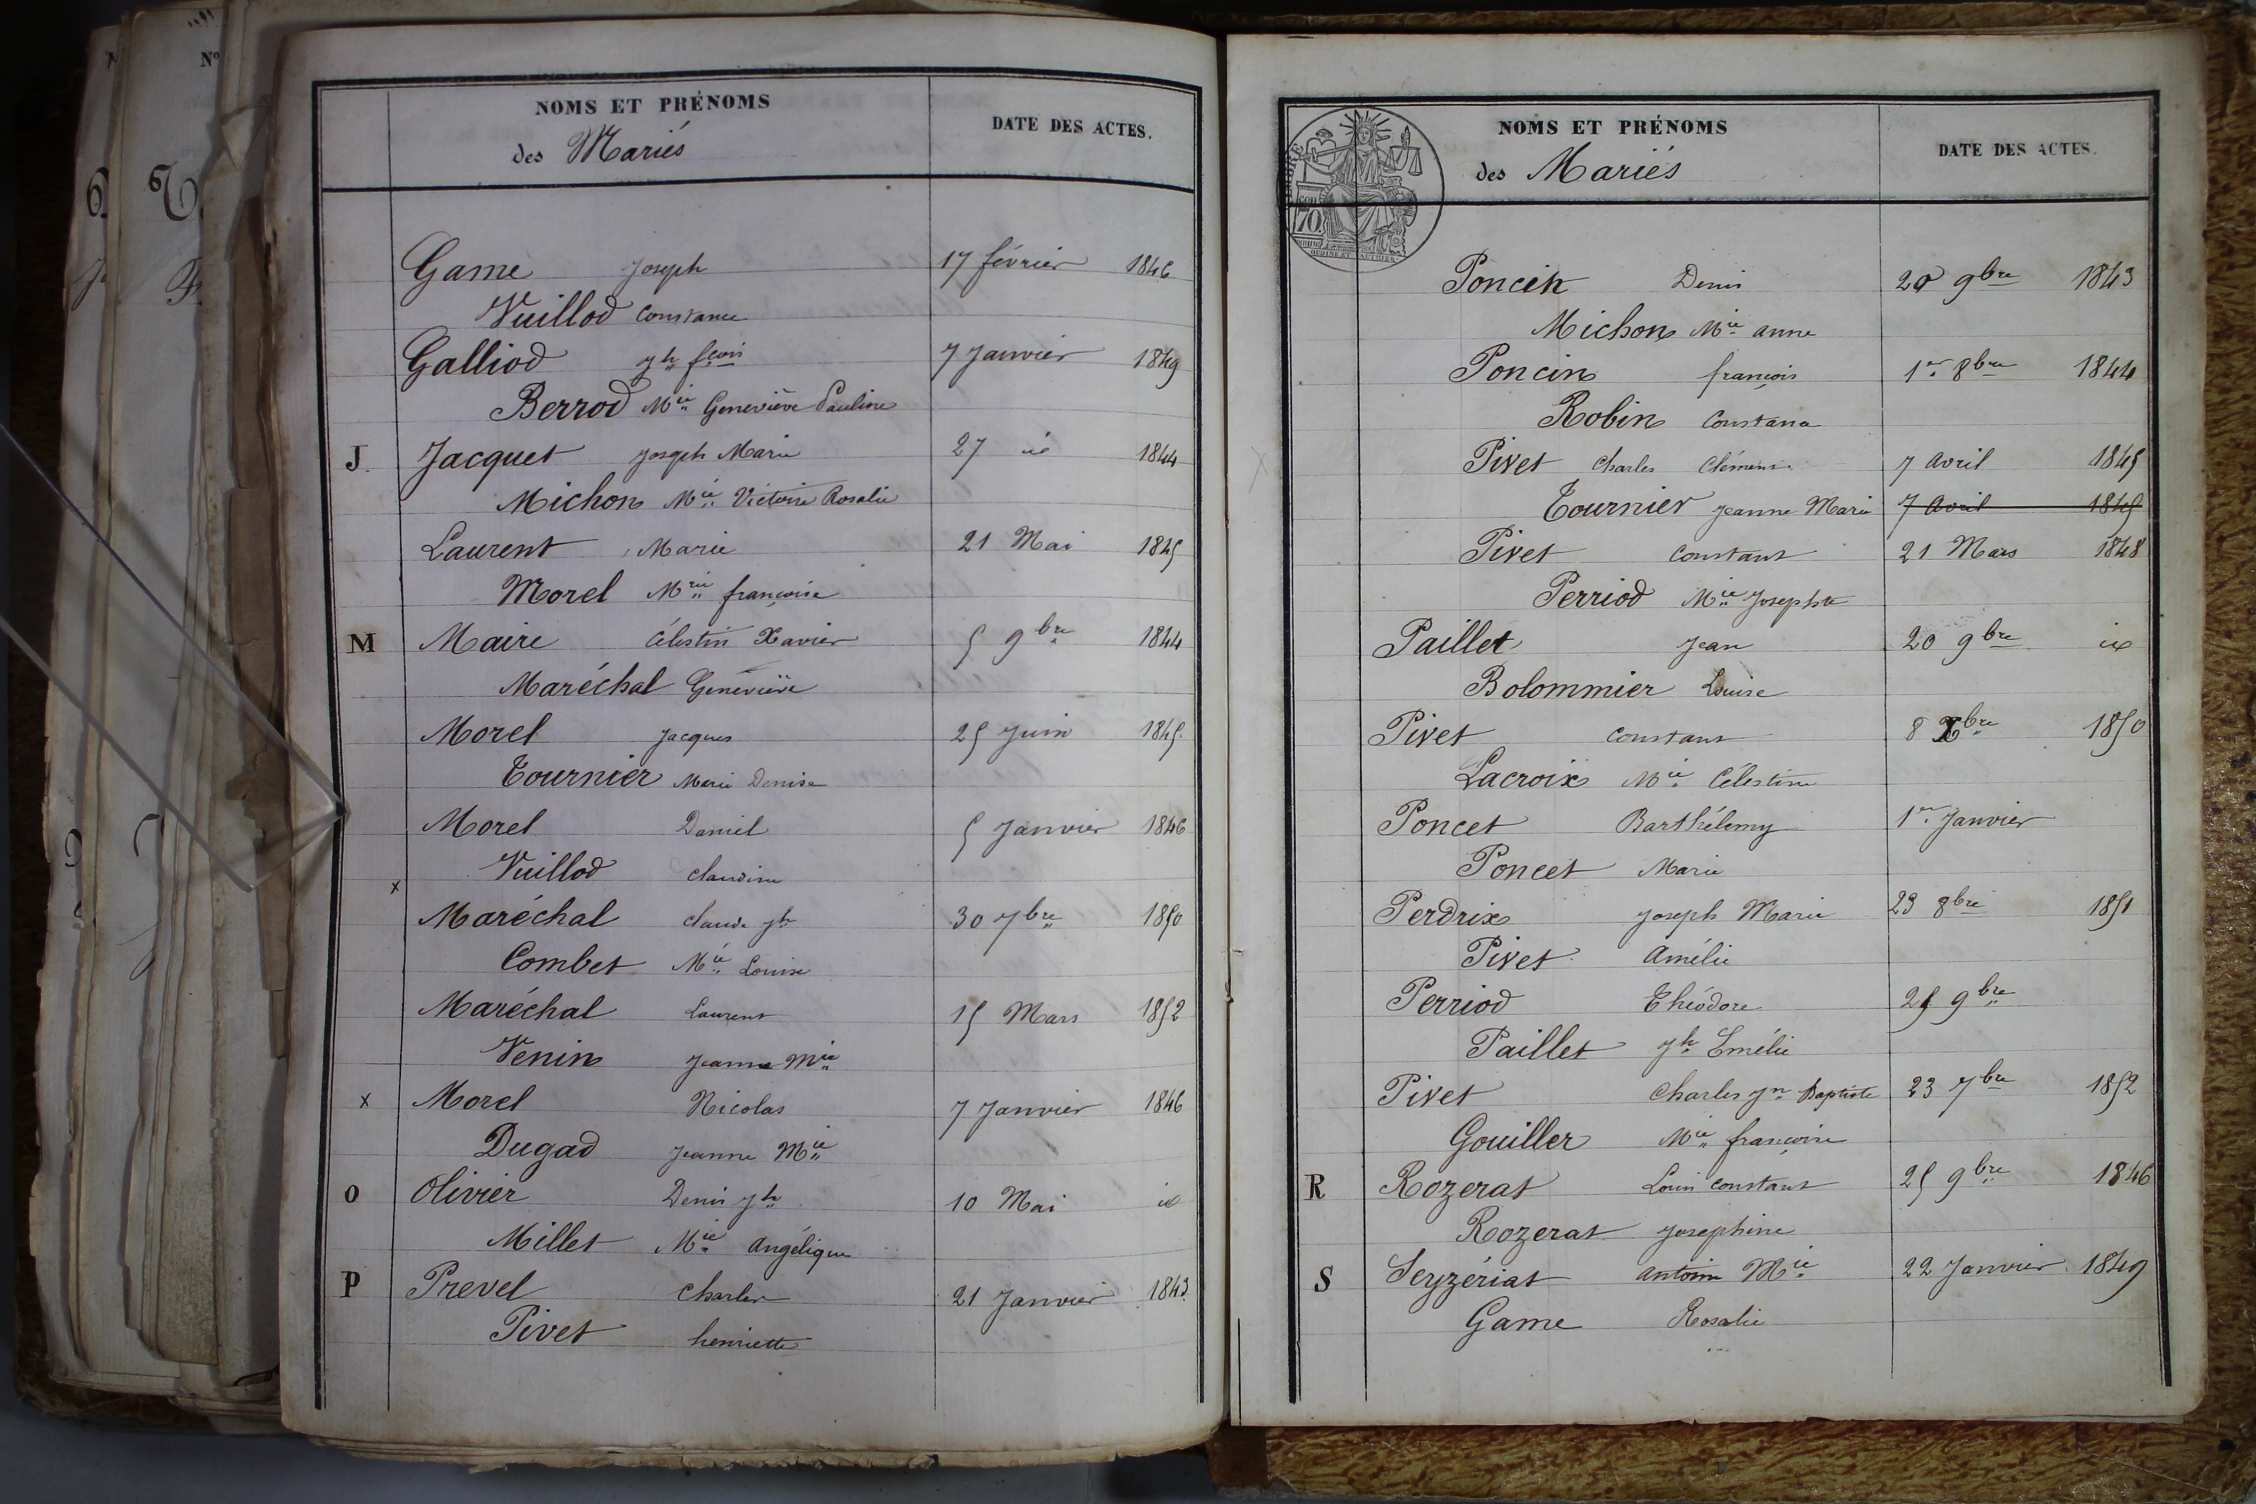 NOMS ET PRÉNOMS
des Mariés
DATE DES ACTES.
Game Joseph 17 février 1846
Vuillod Constance
Galliod Jh fcois 7 Janvier 1849
Berrod Mie Geneviève Pauline
J. Jacquet Joseph Marie 27 id 1844
Michon Mie Victoire Rosalie
Laurent Marie 21 Mai 1845
Morel Mrie françoise
M Maire Célestin Xavier 5 9bre 1844
Maréchal Geneviève
Morel Jacques 25 Juin 1845.
Tournier Marie Denise
Morel Daniel 5 Janvier 1846
Vuillod Claudine
x
Maréchal Claude Jh 30 7bre 1850
Combet Mie Louise
Maréchal Laurent 15 Mars 1852
Venin Jeanne Mie
x Morel Nicolas 7 Janvier 1846
Dugad Jeanne Mie
O Olivier Denis Jh 10 Mai id
Millet Mie Angélique
P Prevel Charles 21 Janvier 1843.
Pivet henriette
NOMS ET PRÉNOMS
des Mariés
DATE DES ACTES.
70
Poncin Denis 20 9bre 1843
Michon Mie anne
Poncin françois 1er 8bre 1844
Robin Constance
Pivet Charles Clément 7 Avril 1845
Tournier Jeanne Marie 7 Avril 1845
Pivet Constant 21 Mars 1848
Perriod Mie Josephte
Paillet Jean 20 9bre id
Bolommier Louise
Pivet Constant 8 Xbre 1850
Lacroix Mie Célestine
Poncet Barthélemy 1er Janvier
Poncet Marie
Perdrix Joseph Marie 23 8bre 1851
Pivet Amélie
Perriod Théodore 25 9bre
Paillet Jh Emélie
Pivet Charles Jn Baptiste 23 7bre 1852
Gouiller Mie françoise
R Rozerat Louis Constant 25 9bre 1846
Rozerat Josephine
S Seyzériat Antoine Mie 22 Janvier 1849
Game Rosalie